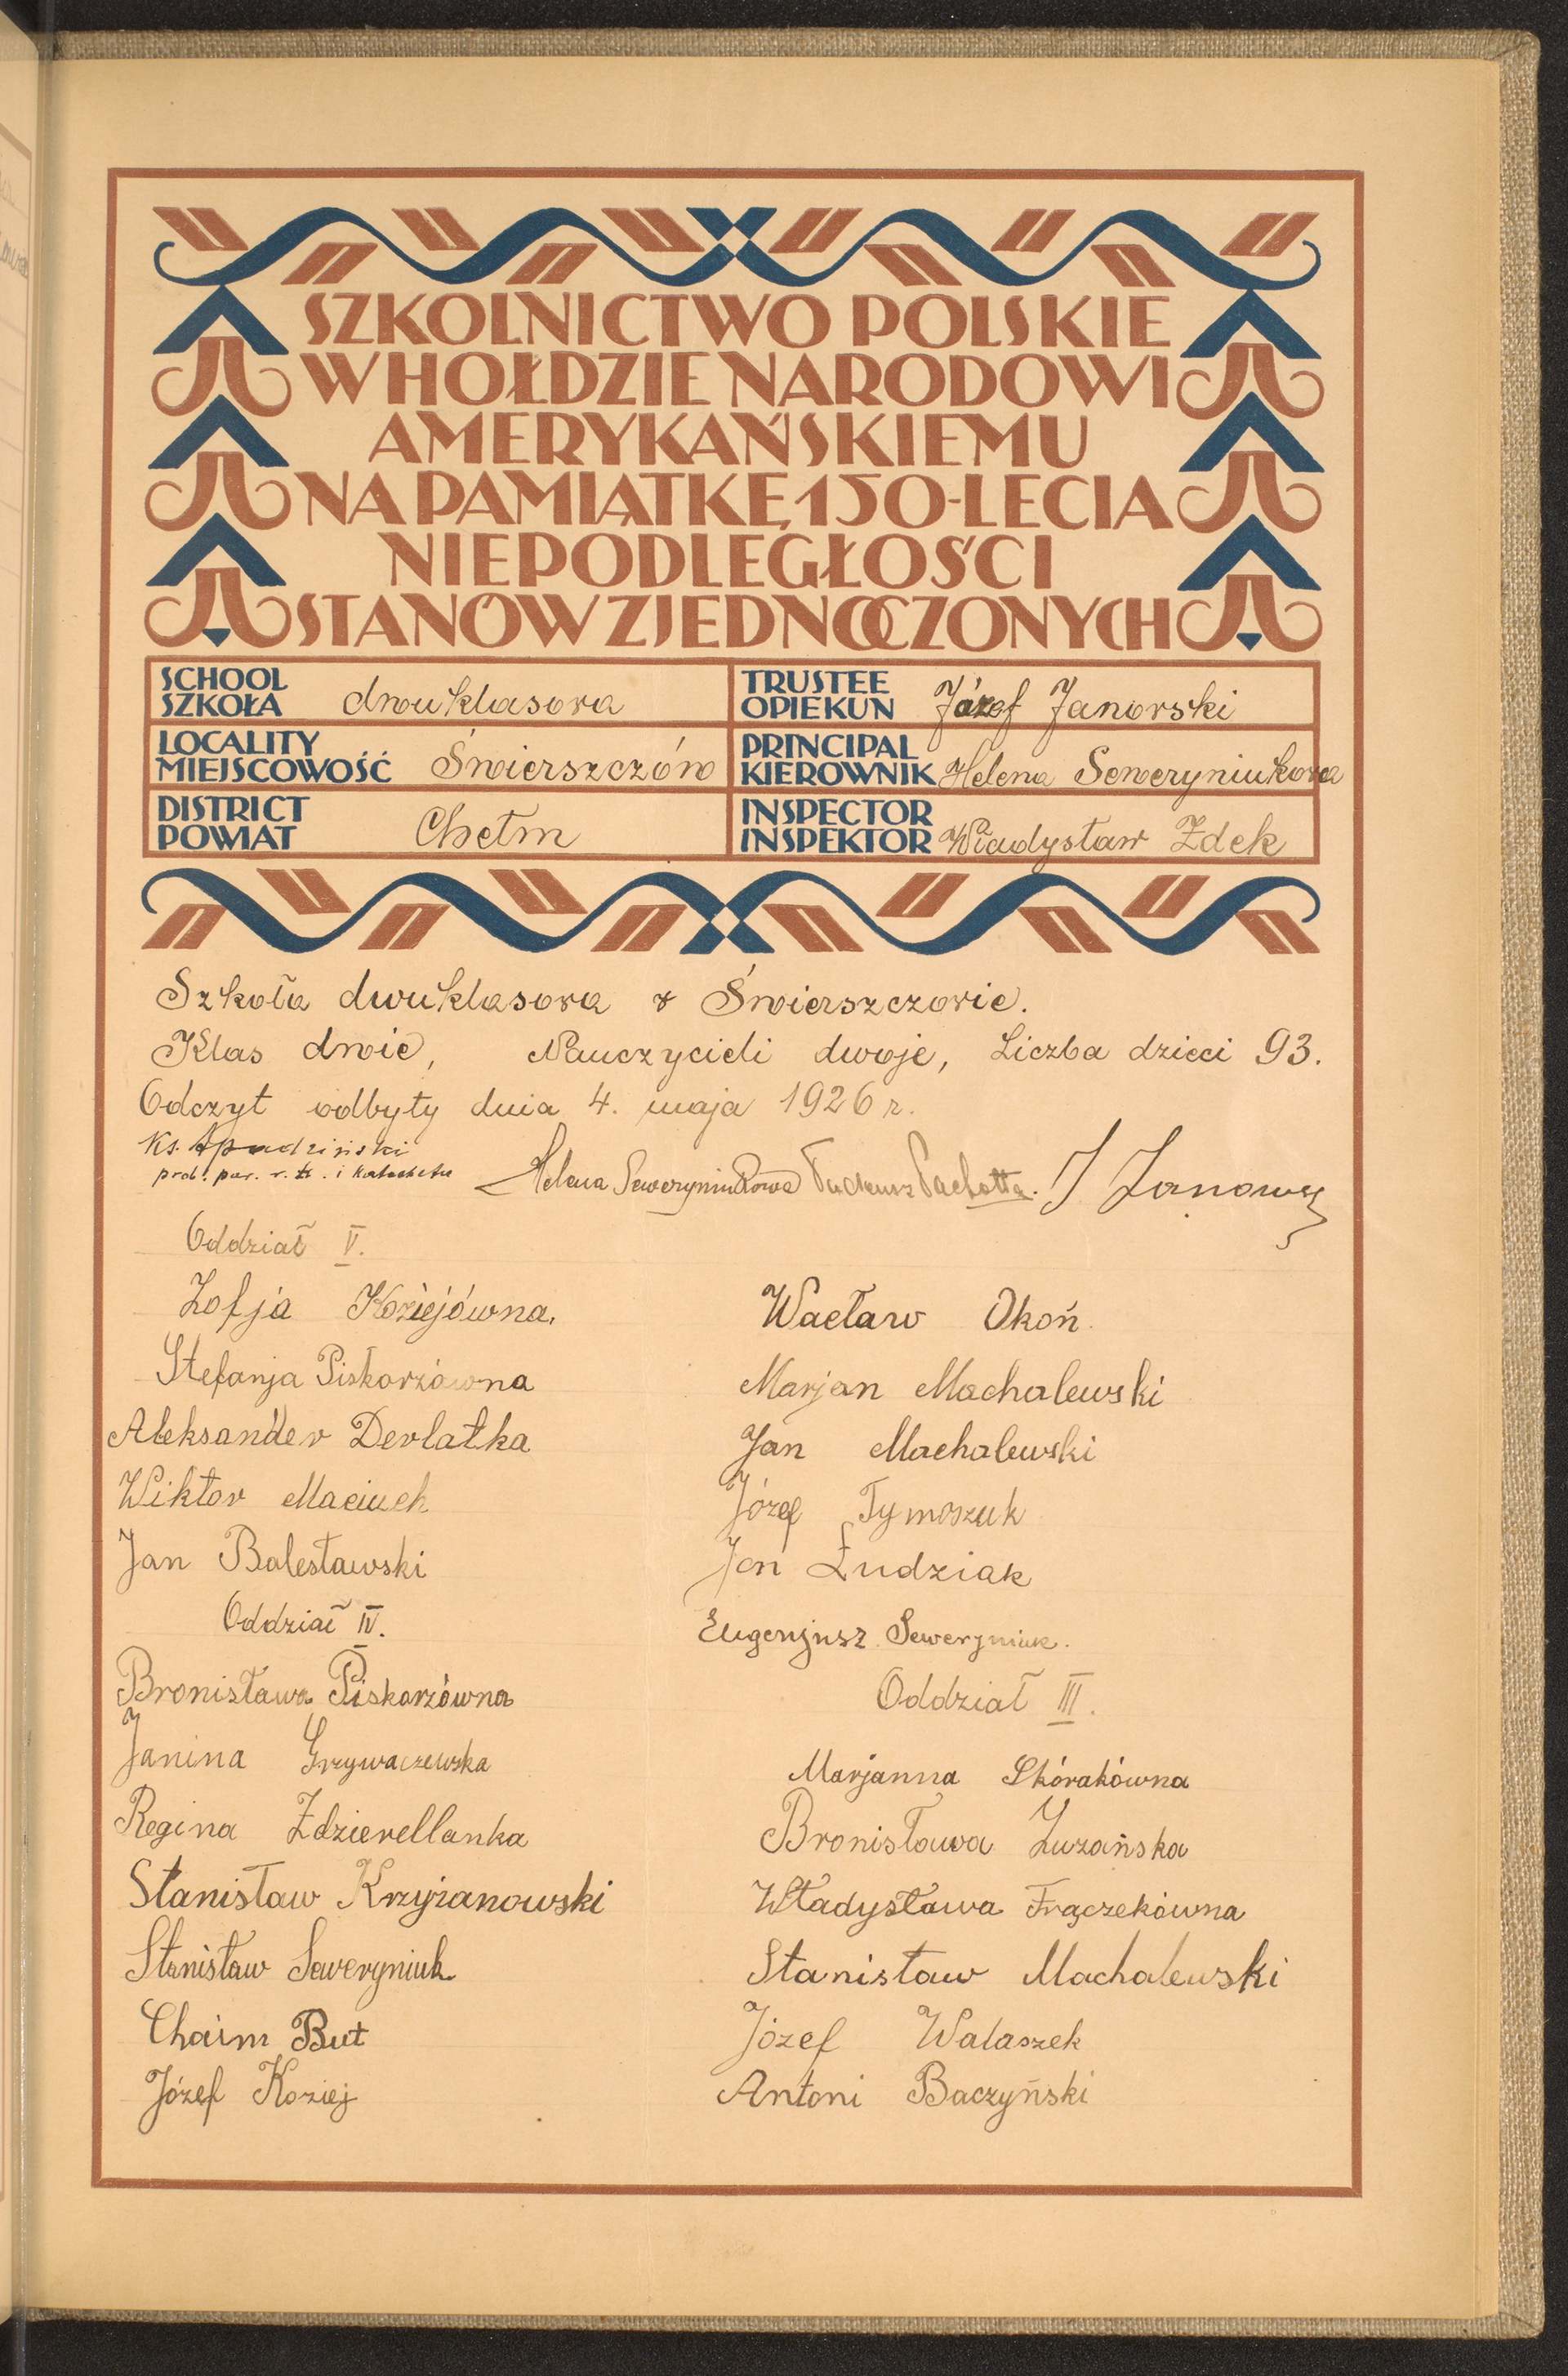 SZKOLNICTWO POLSKIE
W HOŁDZIE NARODOWI
AMERYKAŃSKIEMU
NA PAMIĄTKĘ 150-LECIA
NIEPODLEGŁOŚCI
STANÓW ZJEDNOCZONYCH
SCHOOL
SZKOŁA dwuklasowa
TRUSTEE
OPIEKUN Józef Janowski
LOCALITY
MIEJSCOWOŚĆ Świerszczów
PRINCIPAL
KIEROWNIK Helena Seweryniukowa
DISTRICT
POWIAT Chełm
INSPECTOR
INSPEKTOR Władysław Zdek
Szkoła dwuklasowa w Świerszczowie.
Klas dwie, Nauczycieli dwoje, Liczba dzieci 93.
Odczyt odbyty dnia 4. maja 1926 r.
Ks.
prob. par. r. k. i katecheta
Helena Seweryniukowa Tadeusz Pachotta. J Janows
Oddział V.
Zofja Koziejówna.
Stefanja Piskorzówna
Aleksander Derlatka
Wiktor Maciuch
Jan Balesławski
Oddział IV.
Bronisława Piskorzówna
Janina Grzywaczewska
Regina Zdzierellanka
Stanisław Krzyżanowski
Stanisław Seweryniuk
Chaim But
Józef Koziej
Wacław Okoń.
Marjan Machalewski
Jan Machalewski
Józef Tymoszuk
Jan Łudziak
Eugenjusz Seweryniuk.
Oddział III.
Marjanna Skórakówna
Bronisława Luzańska
Władysława Frączekówna
Stanisław Machalewski
Józef Walaszek
Antoni Baczyński